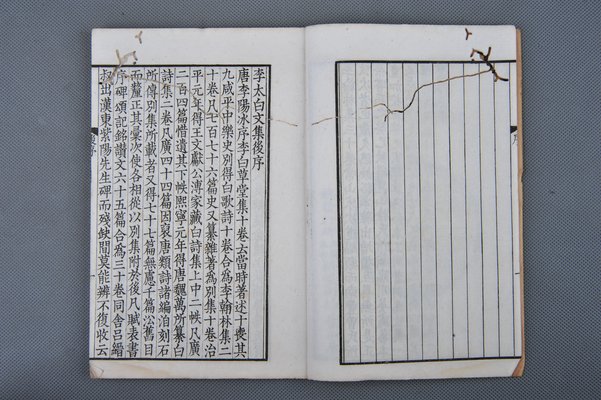 李太白文集後序
唐李陽冰序李白草堂集十卷云當時著述十喪其
九咸平中樂史別得白歌詩十卷合為李翰林集二
十卷凡七百七十六篇史又纂雜著為別集十卷治
平元年得王文獻公溥家藏白詩集上中二帙凡廣
二百四篇惜遺其下帙熙寧元年得唐魏萬所纂白
詩集二卷凡廣四十四篇因裒唐類詩諸編洎刻石
所傳別集所載者又得七十七篇無慮千篇沿舊目
而釐正其彙次使各相從以別集附於後凡賦表書
序碑頌記銘讚文六十五篇合為三十卷同舍呂縉
叔出漢東紫陽先生碑而殘缺間莫能辨不復收云